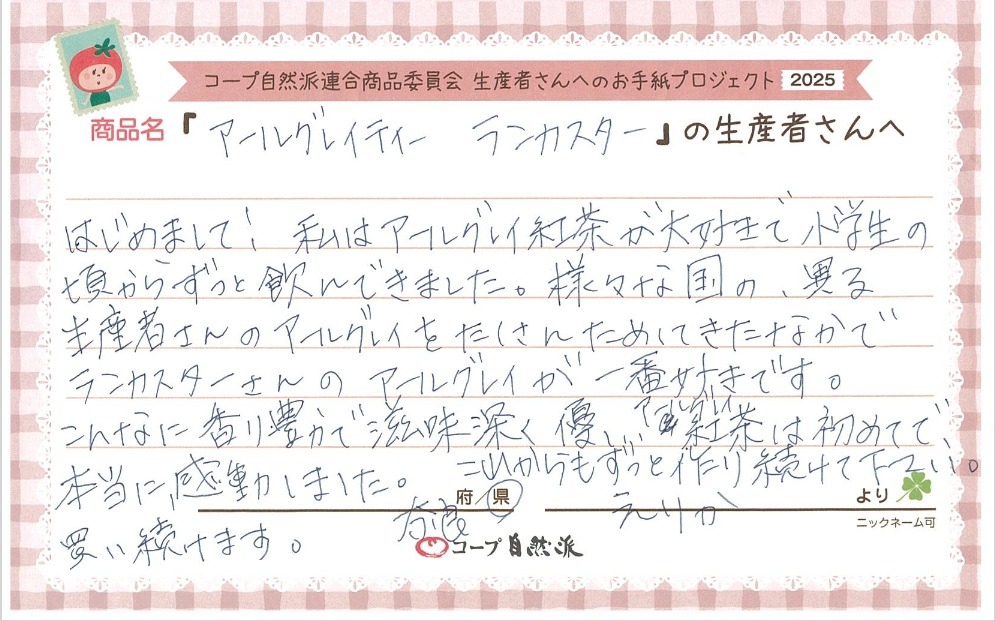 コープ自然派連合商品委員会 生産者さんへのお手紙プロジェクト 2025
商品名『アールグレイティー ランカスター』の生産者さんへ
はじめまして! 私はアールグレイ紅茶が大好きで小学生の
頃からずっと飲んできました。様々な国の、異る
生産者さんのアールグレイをたくさんためしてきたなかで
ランカスターさんの アールグレイが 一番好きです。
こんなに香り豊かで滋味深く優しいアールグレイ紅茶は初めてで、
本当に感動しました。これからもずっと作り続けて下さい。
買い続けます。
奈良 府/県 えりか より
ニックネーム可
コープ自然派